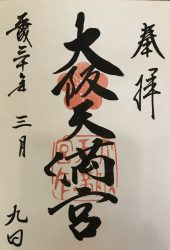 奉拝
大阪天満宮
平成三十年三月九日